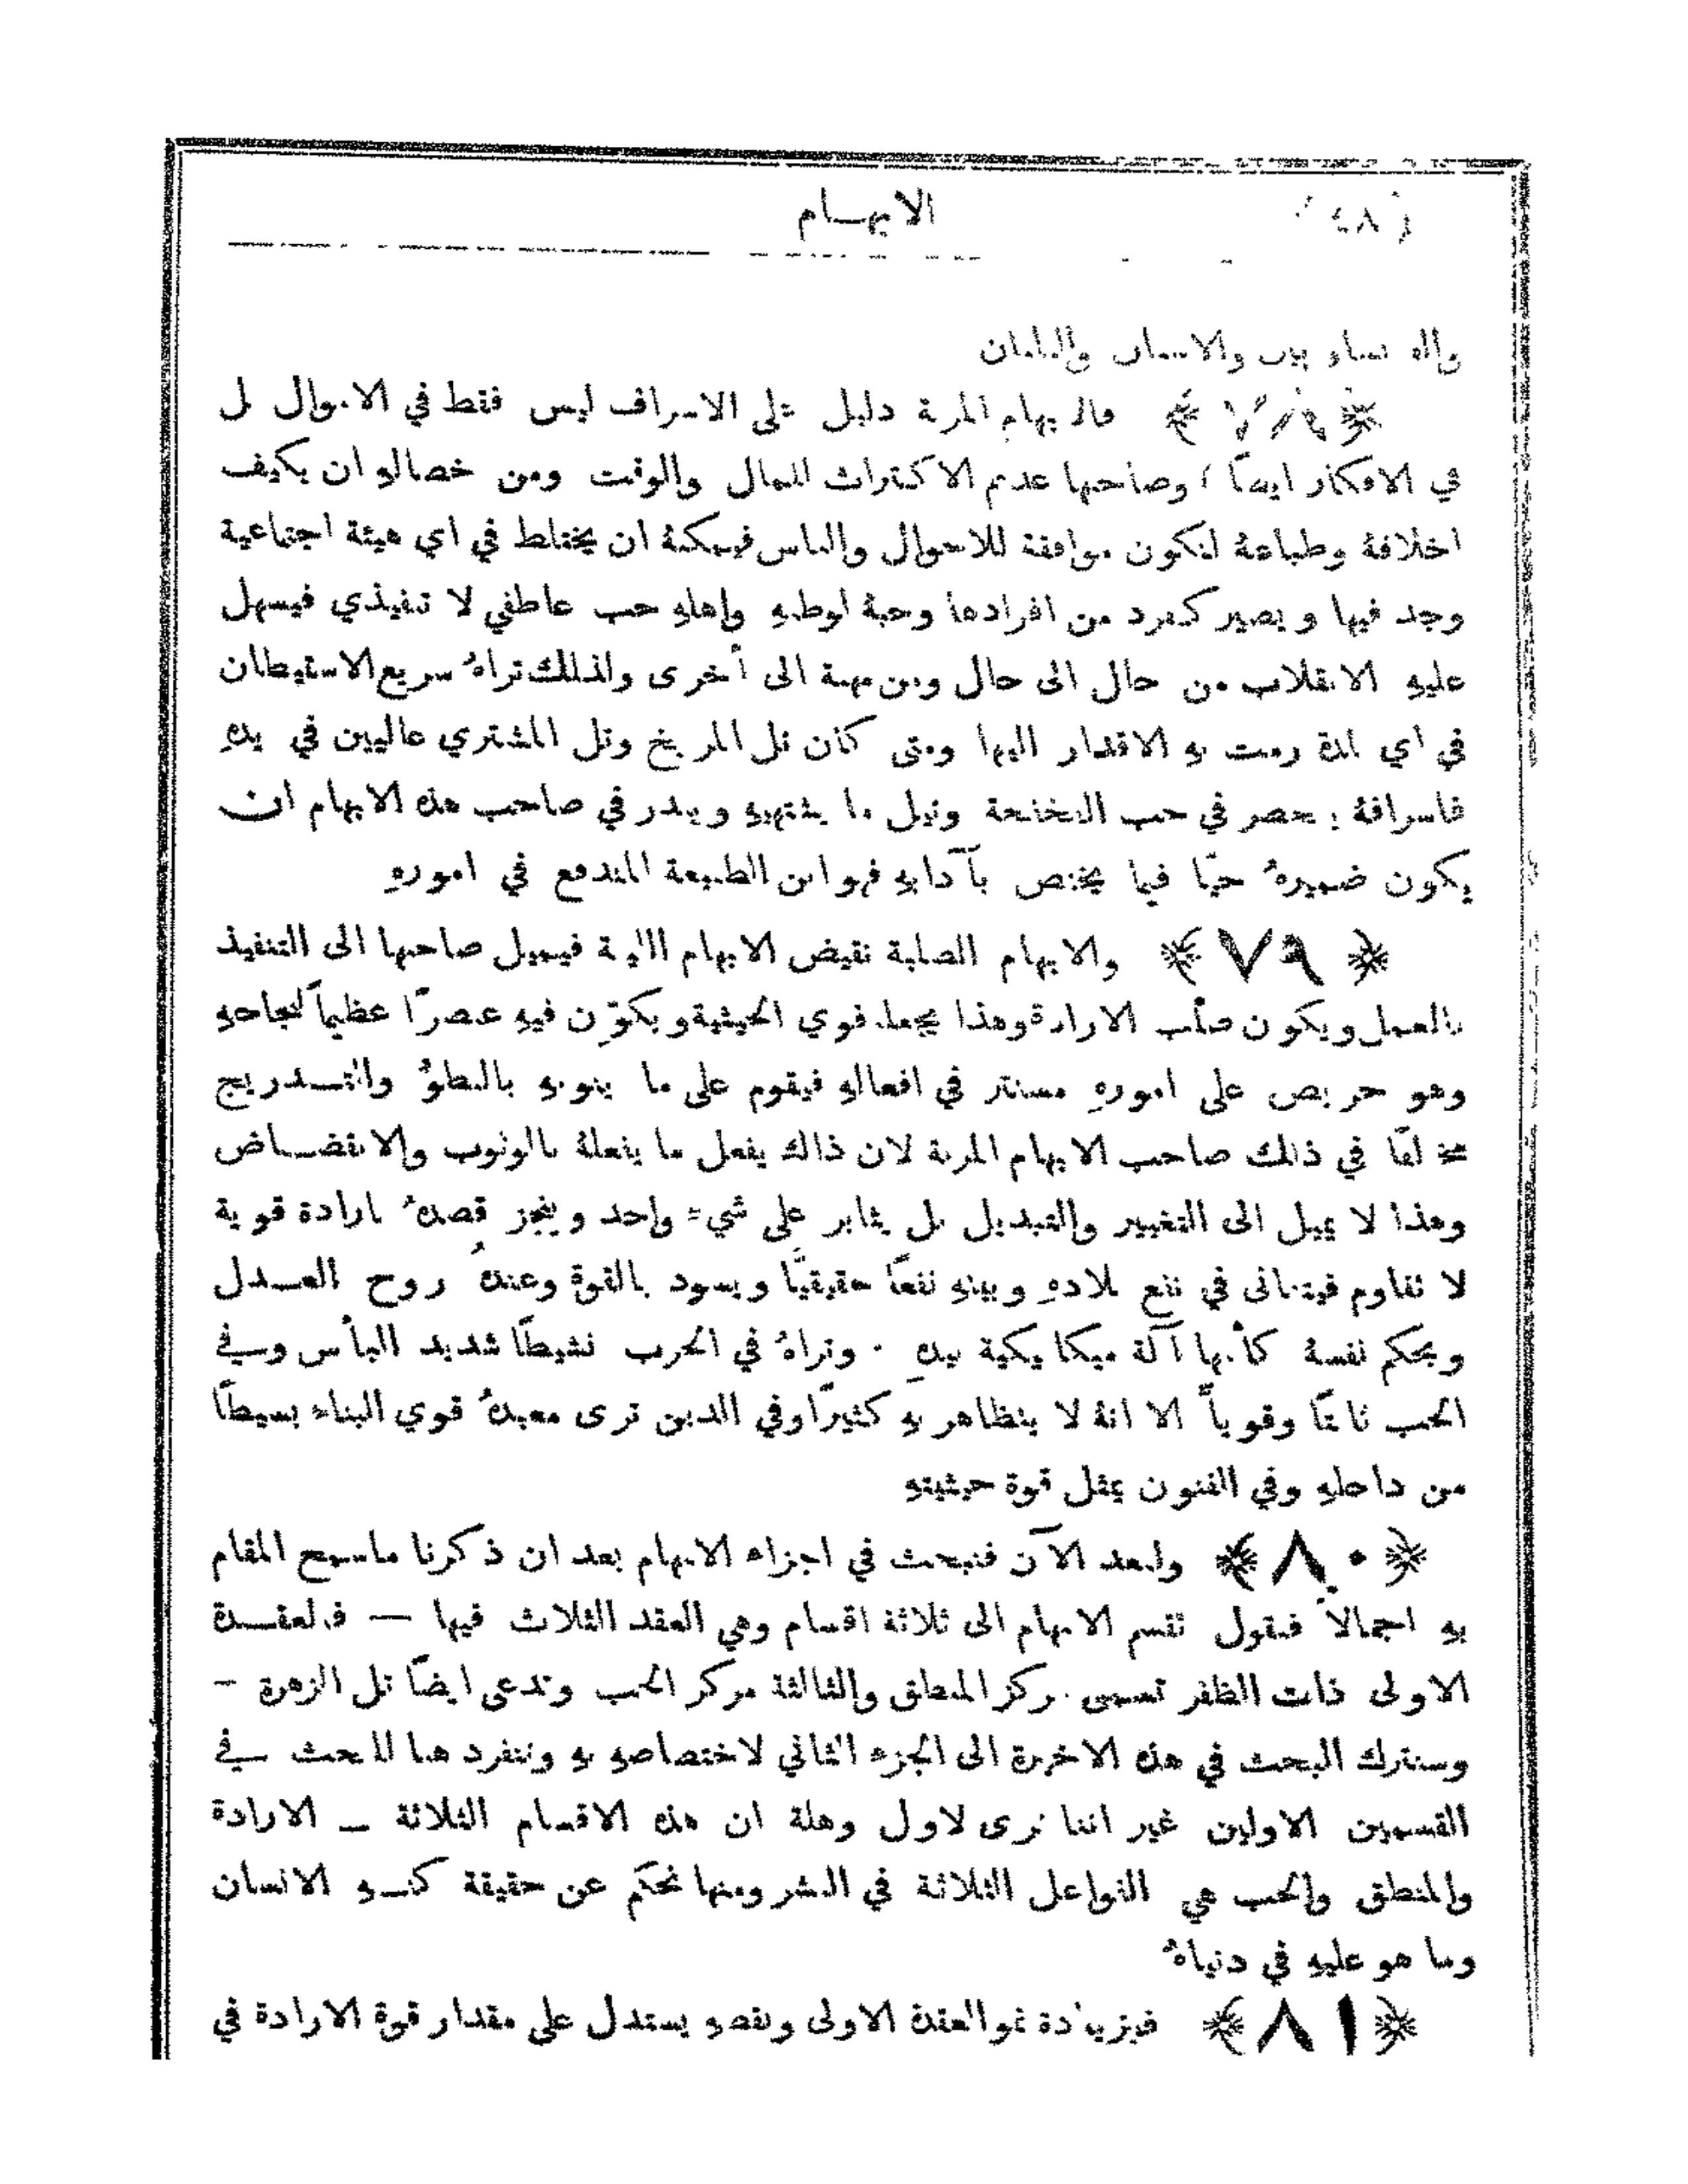 (٤٨)
الابهـام
﴿٧٨﴾ فالابهام المرنة دليل على الاسراف ليس فقط في الاموال بل
في الافكار ايضًا وصاحبها عديم الاكتراث للمال والوقت ومن خصالهِ ان يكيف
اخلاقهُ وطباعهُ لتكون موافقة للاحوال والناس فيمكنهُ ان يختلط في اي هيئة اجتماعية
وجد فيها ويصير كفرد من افرادها وحبهُ لوطنهِ واهلهِ حب عاطفي لا تنفيذي فيسهل
عليهِ الانقلاب من حال الى حال ومن مهنة الى أخرى ولذلك تراهُ سريع الاستيطان
في اي بلدة رمت بهِ الاقدار اليها ومتى كان تل المريخ وتل المشتري عاليين في يدهِ
فاسرافهُ ينحصر في حب الفخفخة ونيل ما يشتهيهِ ويندر في صاحب هذه الابهام ان
يكون ضميرهُ حيًّا فيما يختص بآدابهِ فهو ابن الطبيعة المندفع في امورهِ
﴿٧٩﴾ والابهام الصلبة نقيض الابهام اللينة فيميل صاحبها الى التنفيذ
بالعمل ويكون صلب الارادة وهذا يجعلهُ قوي الحيثية ويكوّن فيهِ عنصرًا عظيماً لنجاحهِ
وهو حريص على امورهِ مستتر في افعالهِ فيقوم على ما ينويهِ بالبطوْ والتـدريج
مخالفًا في ذلك صاحب الابهام المرنة لان ذاك يفعل ما يفعلهُ بالوثوب والانقضـاض
وهذا لا يميل الى التغيير والتبديل بل يثابر على شيء واحد وينجز قصدهُ بارادة قوية
لا تقاوم فيتفانى في نفع بلادهِ وبيتهِ نفعًا حقيقيًّا ويسود بالقوة وعندهُ روح العـدل
ويحكم نفسهُ كأنها آلة ميكانيكية بيدهِ . وتراهُ في الحرب نشيطًا شديد البأس وفي
الحب ثابتًا وقوياً الا انهُ لا يتظاهر بهِ كثيرًا وفي الدين ترى معبدهُ قوي البناء بسيطًا
من داخلهِ وفي الفنون يمثل قوة حيثيتهِ
﴿٨٠﴾ ولنعد الآن فنبحث في اجزاء الابهام بعد ان ذكرنا ما سمح المقام
بهِ اجمالاً فنقول تقسم الابهام الى ثلاثة اقسام وهي العقد الثلاث فيها — فالعقـدة
الاولى ذات الظفر تسمى مركز المنطق والثالثة مركز الحب وتدعى ايضًا تل الزهرة –
وسنترك البحث في هذه الاخيرة الى الجزء الثاني لاختصاصهِ بهِ وننفرد هنا للبحث في
القسمين الاولين غير اننا نرى لاول وهلة ان هذه الاقسام الثلاثة – الارادة
والمنطق والحب هي الفواعل الثلاثة في البشر ومنها نحكم عن حقيقة كنـهِ الانسان
وما هو عليهِ في دنياهُ
﴿٨١﴾ فبزيادة نمو العقدة الاولى ونقصهِ يستدل على مقدار قوة الارادة في